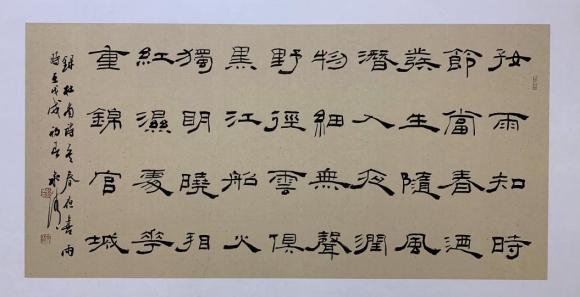 好雨知時
節當春迺
發生隨風
潛入夜潤
物細無聲
野徑雲俱
黑江船火
獨明曉看
紅濕處花
重錦官城
錄杜甫詩春夜喜雨
時戊初春